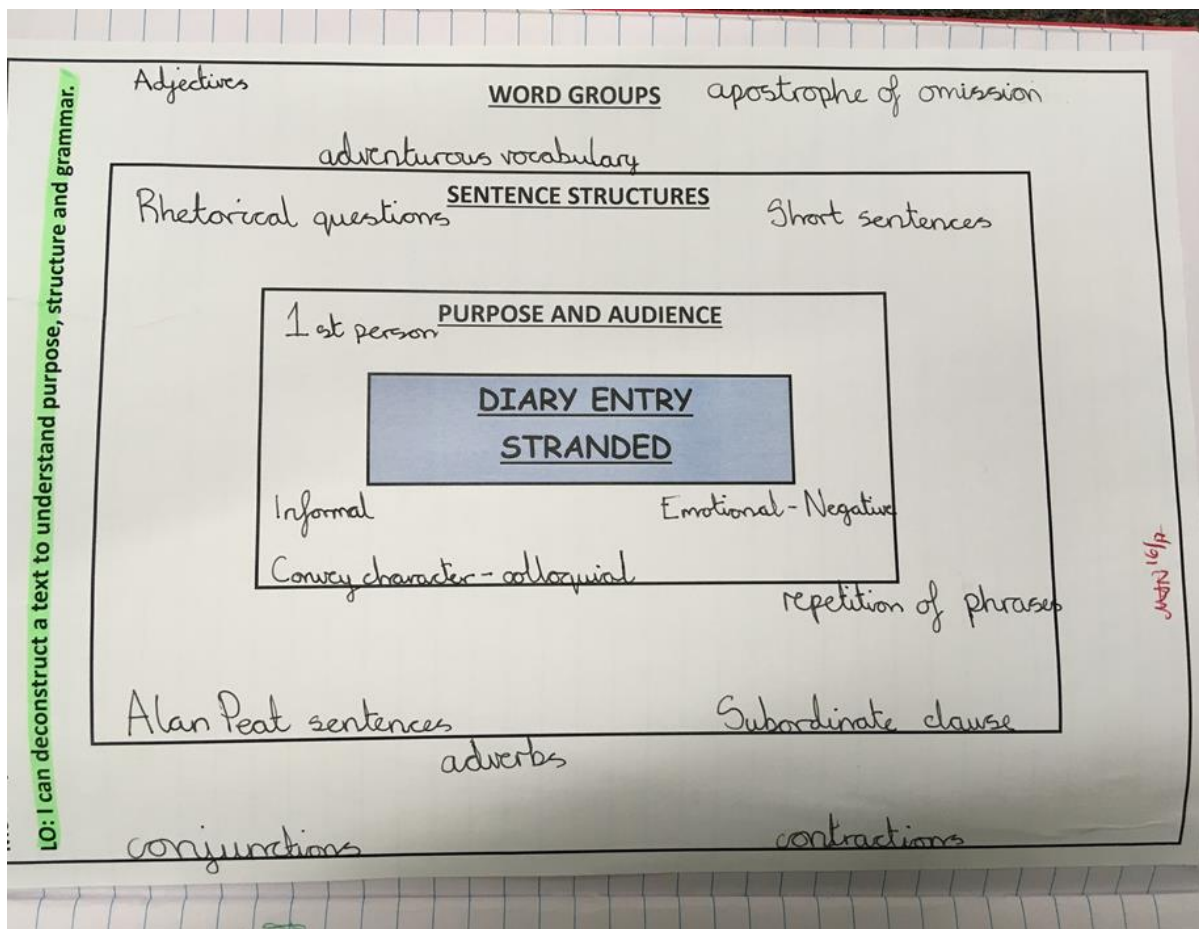 LO: I can deconstruct a text to understand purpose, structure and grammar.
Adjectives
WORD GROUPS
apostrophe of omission
adventurous vocabulary
SENTENCE STRUCTURES
Rhetorical questions
Short sentences
PURPOSE AND AUDIENCE
1st person
DIARY ENTRY
STRANDED
Informal
Emotional - Negative
Convey character - colloquial
repetition of phrases
Alan Peat sentences
Subordinate clause
adverbs
conjunctions
contractions